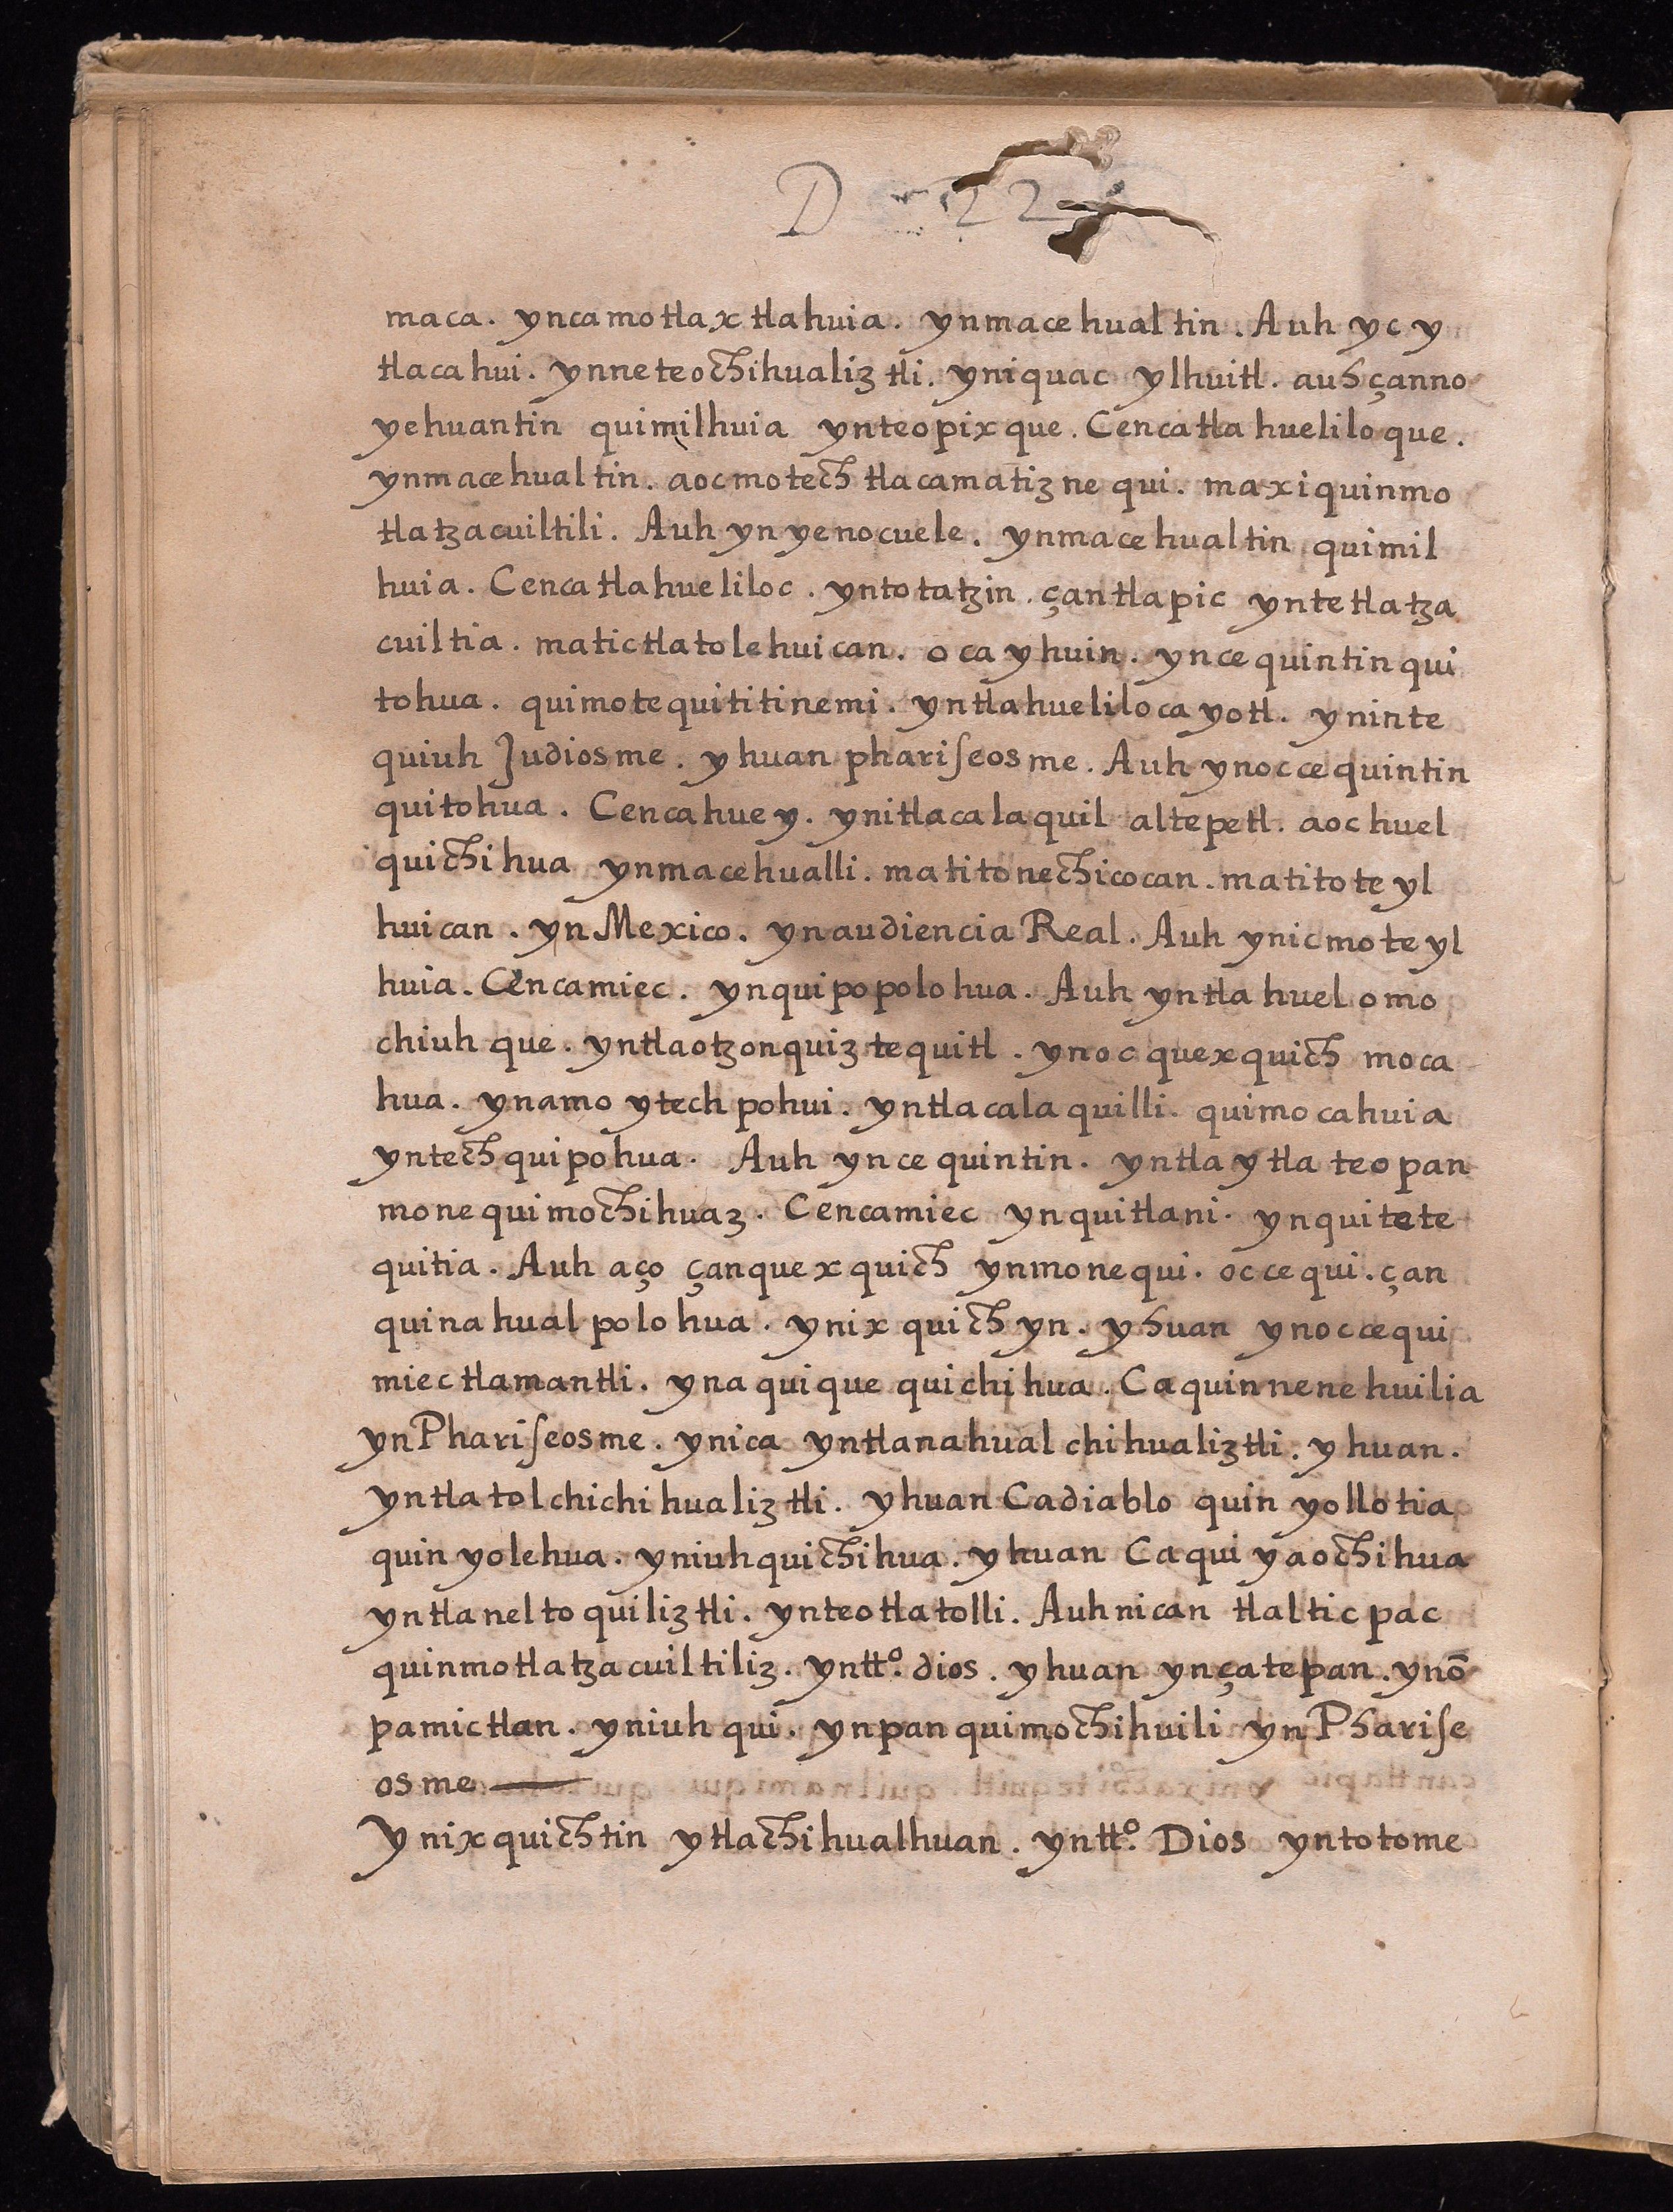 D 22
maca. yncamotlaxtlahuia. ynmacehualtin. Auh yc y
tlacahui. ynneteochihualiztli. yniquac ylhuitl. auh çanno
yehuantin quimilhuia ynteopixque. Cencatlahueliloque.
ynmacehualtin. aocmotech tlacamatizne qui. maxiquinmo
tlatzacuiltili. Auh yn yenocuele. ynmacehualtin quimil
huia. Cencatlahueliloc. yntotatzin. çantlapic yntetlatza
cuiltia. matictlatolehuican. oca yhuin. yncequintin qui
tohua. quimotequititinemi. yntlahuelilocayotl. yninte
quiuh Judiosme. yhuan phariseosme. Auh ynoccequintin
quitohua. Cencahuey. ynitlacalaquil altepetl. aochuel
quichihua ynmacehualli. matitonechicocan. matitoteyl
huican. yn Mexico. ynaudiencia Real. Auh ynicmoteyl
huia. Cencamiec. ynquipopolohua. Auh yntlahuel omo
chiuhque. yntlaotzonquiz tequitl. ynoc quexquich moca
hua. ynamo ytech pohui. yntlacalaquilli. quimocahuia
yntech quipohua. Auh yncequintin. yntla ytla teopan
monequi mochihuaz. Cencamiec ynquitlani. ynquitete
quitia. Auh aço çanquexquich ynmonequi. occequi. çan
quinahualpolohua. ynixquich yn. yhuan ynoccequi
miectlamantli. ynaquique quichihua. Caquinnenehuilia
yn Phariseosme. ynica yntlanahualchihualiztli. yhuan.
yntlatolchichihualiztli. yhuan Cadiablo quin yollotia
quin yolehua. yniuhquichihua. yhuan Caqui yaochihua
yntlaneltoquiliztli. ynteotlatolli. Auhnican tlalticpac
quinmotlatzacuiltiliz. yntt⁰. dios. yhuan ynçatepan. ynō
pamictlan. yniuhqui. ynpanquimochihuili yn Pharise
osme
Ynixquichtin ytlachihualhuan. yntt⁰. Dios yntotome